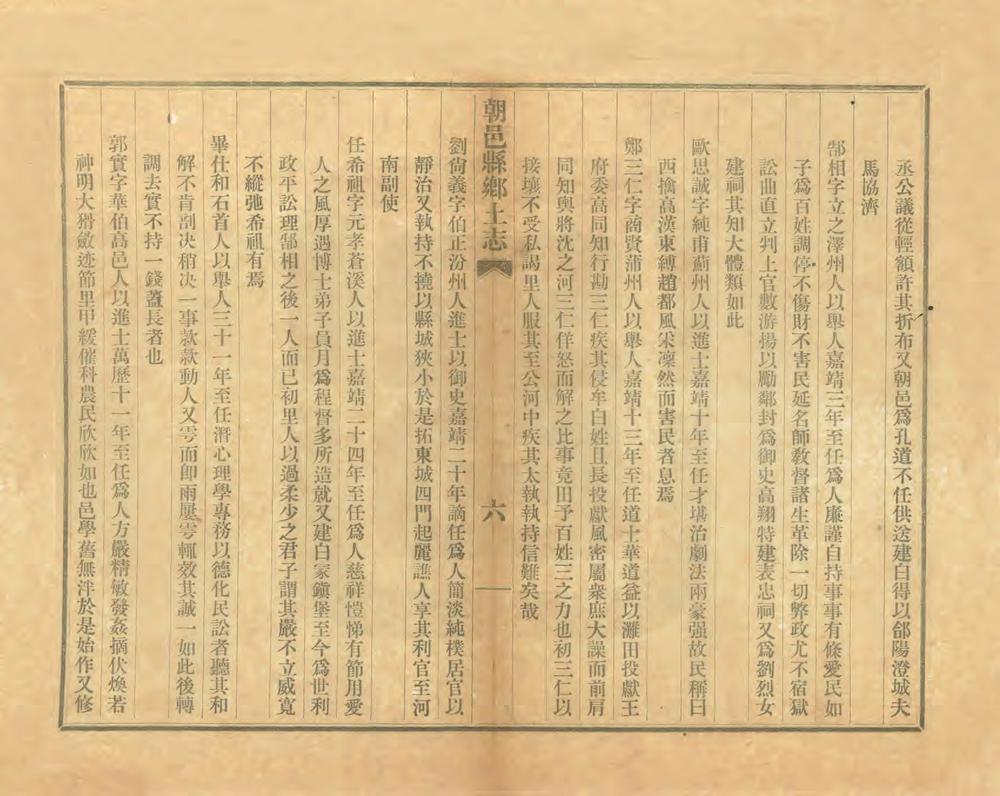 丞公議從輕額許其折布又朝邑爲孔道不任供送建白得以郃陽澄城夫
馬協濟
郜相字立之澤州人以舉人嘉靖三年至任爲人廉謹自持事事有條愛民如
子爲百姓調停不傷財不害民延名師敎督諸生革除一切弊政尤不宿獄
訟曲直立判上官數游揚以勵鄰封爲御史高翔特建表忠祠又爲劉烈女
建祠其知大體類如此
歐思誠字純甫薊州人以進士嘉靖十年至任才堪治劇法兩豪强故民稱曰
西擒高漢東縛趙都風栄凜然而害民者息焉
鄭三仁字商賢蒲州人以舉人嘉靖十三年至任道士華道益以灘田投獻王
府委高同知行勘三仁疾其侵牟白姓且長投獻風密屬衆庶大譟而前肩
同知輿將沈之河三仁佯怒而解之比事竟田予百姓三之力也初三仁以
接壤不受私謁里人服其至公河中疾其太執執持信難矣哉
朝邑縣鄕土志
六
劉尙義字伯正汾州人進士以御史嘉靖二十年謫任爲人簡淡純樸居官以
靜治又執持不撓以縣城狹小於是拓東城四門起麗譙人享其利官至河
南副使
任希祖字元孝蒼溪人以進士嘉靖二十四年至任爲人慈祥愷悌有節用愛
人之風厚遇博士弟子員月爲程督多所造就又建白家鎭堡至今爲世利
政平訟理郜相之後一人而已初里人以過柔少之君子謂其嚴不立威寬
不縱弛希祖有焉
畢仕和石首人以舉人三十一年至任潛心理學專務以德化民訟者聽其和
解不肯剖决稍决一事款款動人又雩而卽雨屢雩輒效其誠一如此後轉
調去實不持一錢蓋長者也
郭實字華伯高邑人以進士萬歷十一年至任爲人方嚴精敏發姦摘伏煥若
神明大猾斂迹節里甲緩催科農民欣欣如也邑學舊無泮於是始作又修